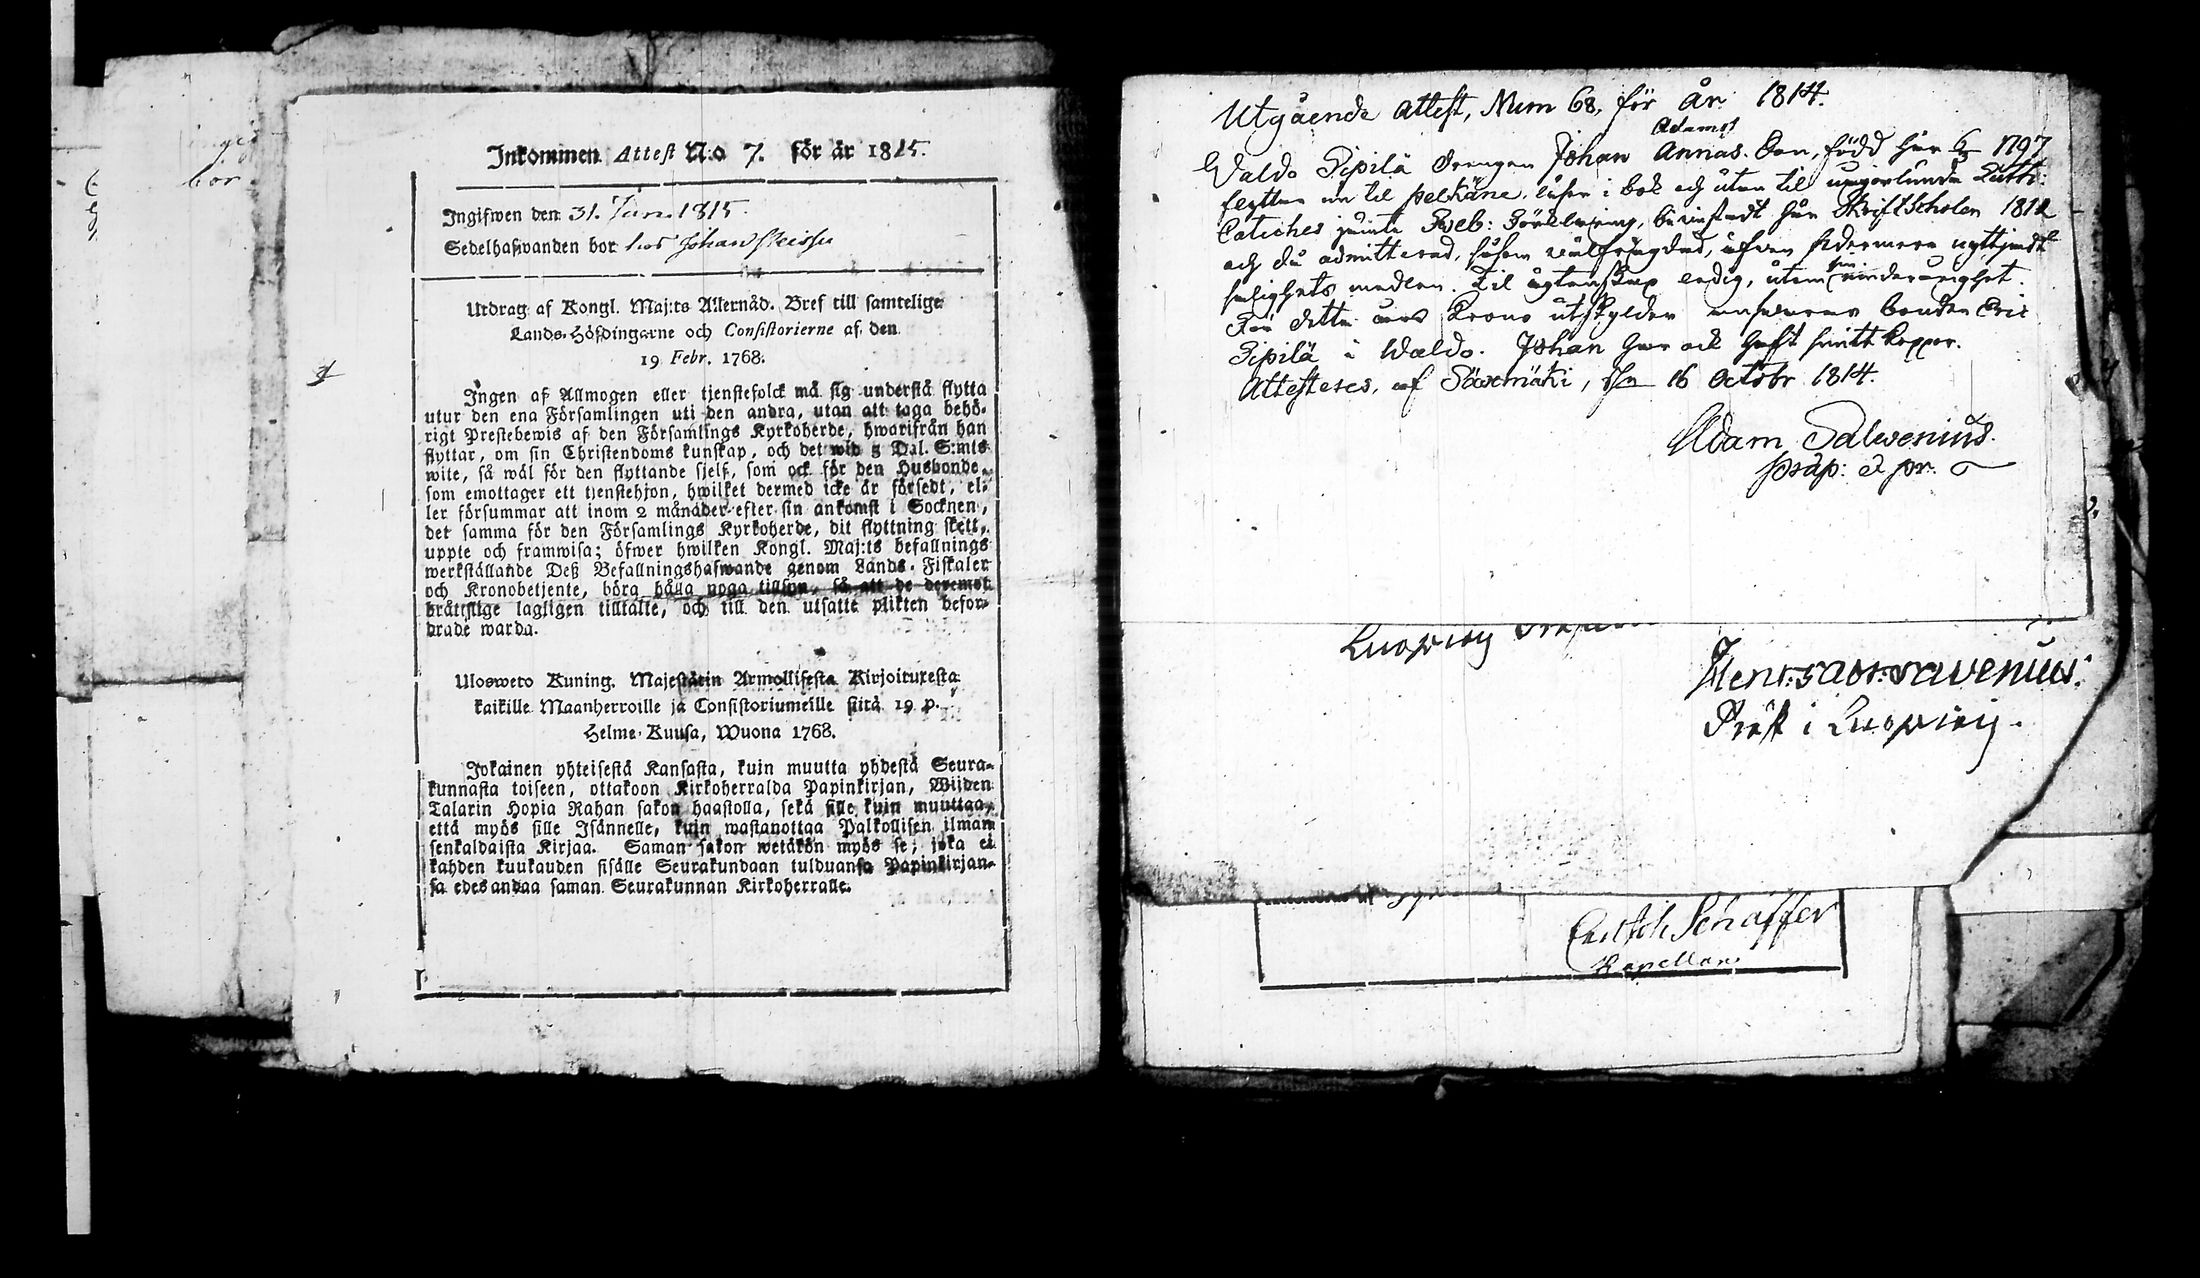 Inkommen Attest N:o 7. för år 1815.
Ingifwen den 31. Jan. 1815.
Sedelhafwanden bor hos Johan
Utdrag af Kongl. Maj:ts Allernåd. Bref till samtelige
Lands-Höfdingarne och Consistorierne af den
19 Febr. 1768.
Ingen af Allmogen eller tjenstefolck må sig understå flytta
utur den ena Församlingen uti den andra, utan att taga behö-
rigt Prestebewis af den Församlings Kyrkoherde, hwarifrån han
flyttar, om sin Christendoms kunskap, och det wid 5 Dal. S:mts
wite, så wäl för den flyttande sjelf, som ock för den Husbonde,
som emottager ett tjenstehjon, hwilket dermed icke är försedt, el-
ler försummar att inom 2 månader efter sin ankomst i Socknen,
det samma för den Församlings Kyrkoherde, dit flyttning skett,
uppte och framwisa; öfwer hwilken Kongl. Maj:ts befallnings
werkställande Deß Befallningshafwande genom Lands-Fiskaler
och Kronobetjente, böra hålla noga tillsyn, så att de deremot
bråttslige lagligen tilltalte, och till den utsatte plikten befor-
drade warda.
Ulosweto Kuning. Majestätin Armollisesta Kirjoituxesta
kaikille Maanherroille ja Consistoriumeille siitä 19 p.
Helme-Kuusa, Wuona 1768.
Jokainen yhteisestä Kansasta, kuin muutta yhdestä Seura-
kunnasta toiseen, ottakoon Kirkoherralda Papinkirjan, Wiiden
Talarin Hopia Rahan sakon haastolla, sekä sille kuin muuttaa,
että myös sille Isännelle, kuin wastanottaa Palkollisen ilman
senkaldaista Kirjaa. Saman sakon wetäkön myös se, joka ei
kahden kuukauden sisälle Seurakundaan tulduansa Papinkirjan-
sa edesandaa saman Seurakunnan Kirkoherralle.
Utgående Attest, Num 68, för år 1814.
Adams
Waldo Pipilä Drengen Johan Annas Son, född här 1797
flyttar nu til Pelkäne, läser i bok och utan til någorlunda Luth:
Catiches jemte Sveb: Förklaring, bewistadt här Skriftscholan 1812
och då admitterad, såsom wälfrägdad, äfwen sedermera nyttjadt
salighets medlen. Til ägtenskap ledig, utom sin minderårighet.
För detta års Krono utskylder answarar bonden Eric
Pipilä i Waldo. Johan har ock haft smitt koppor.
Attesteres, af Sääxmäki, d. 16 Octobr 1814.
Adam Salwenius.
præp: & pr.
Præst i
Schäffer
Kapellan